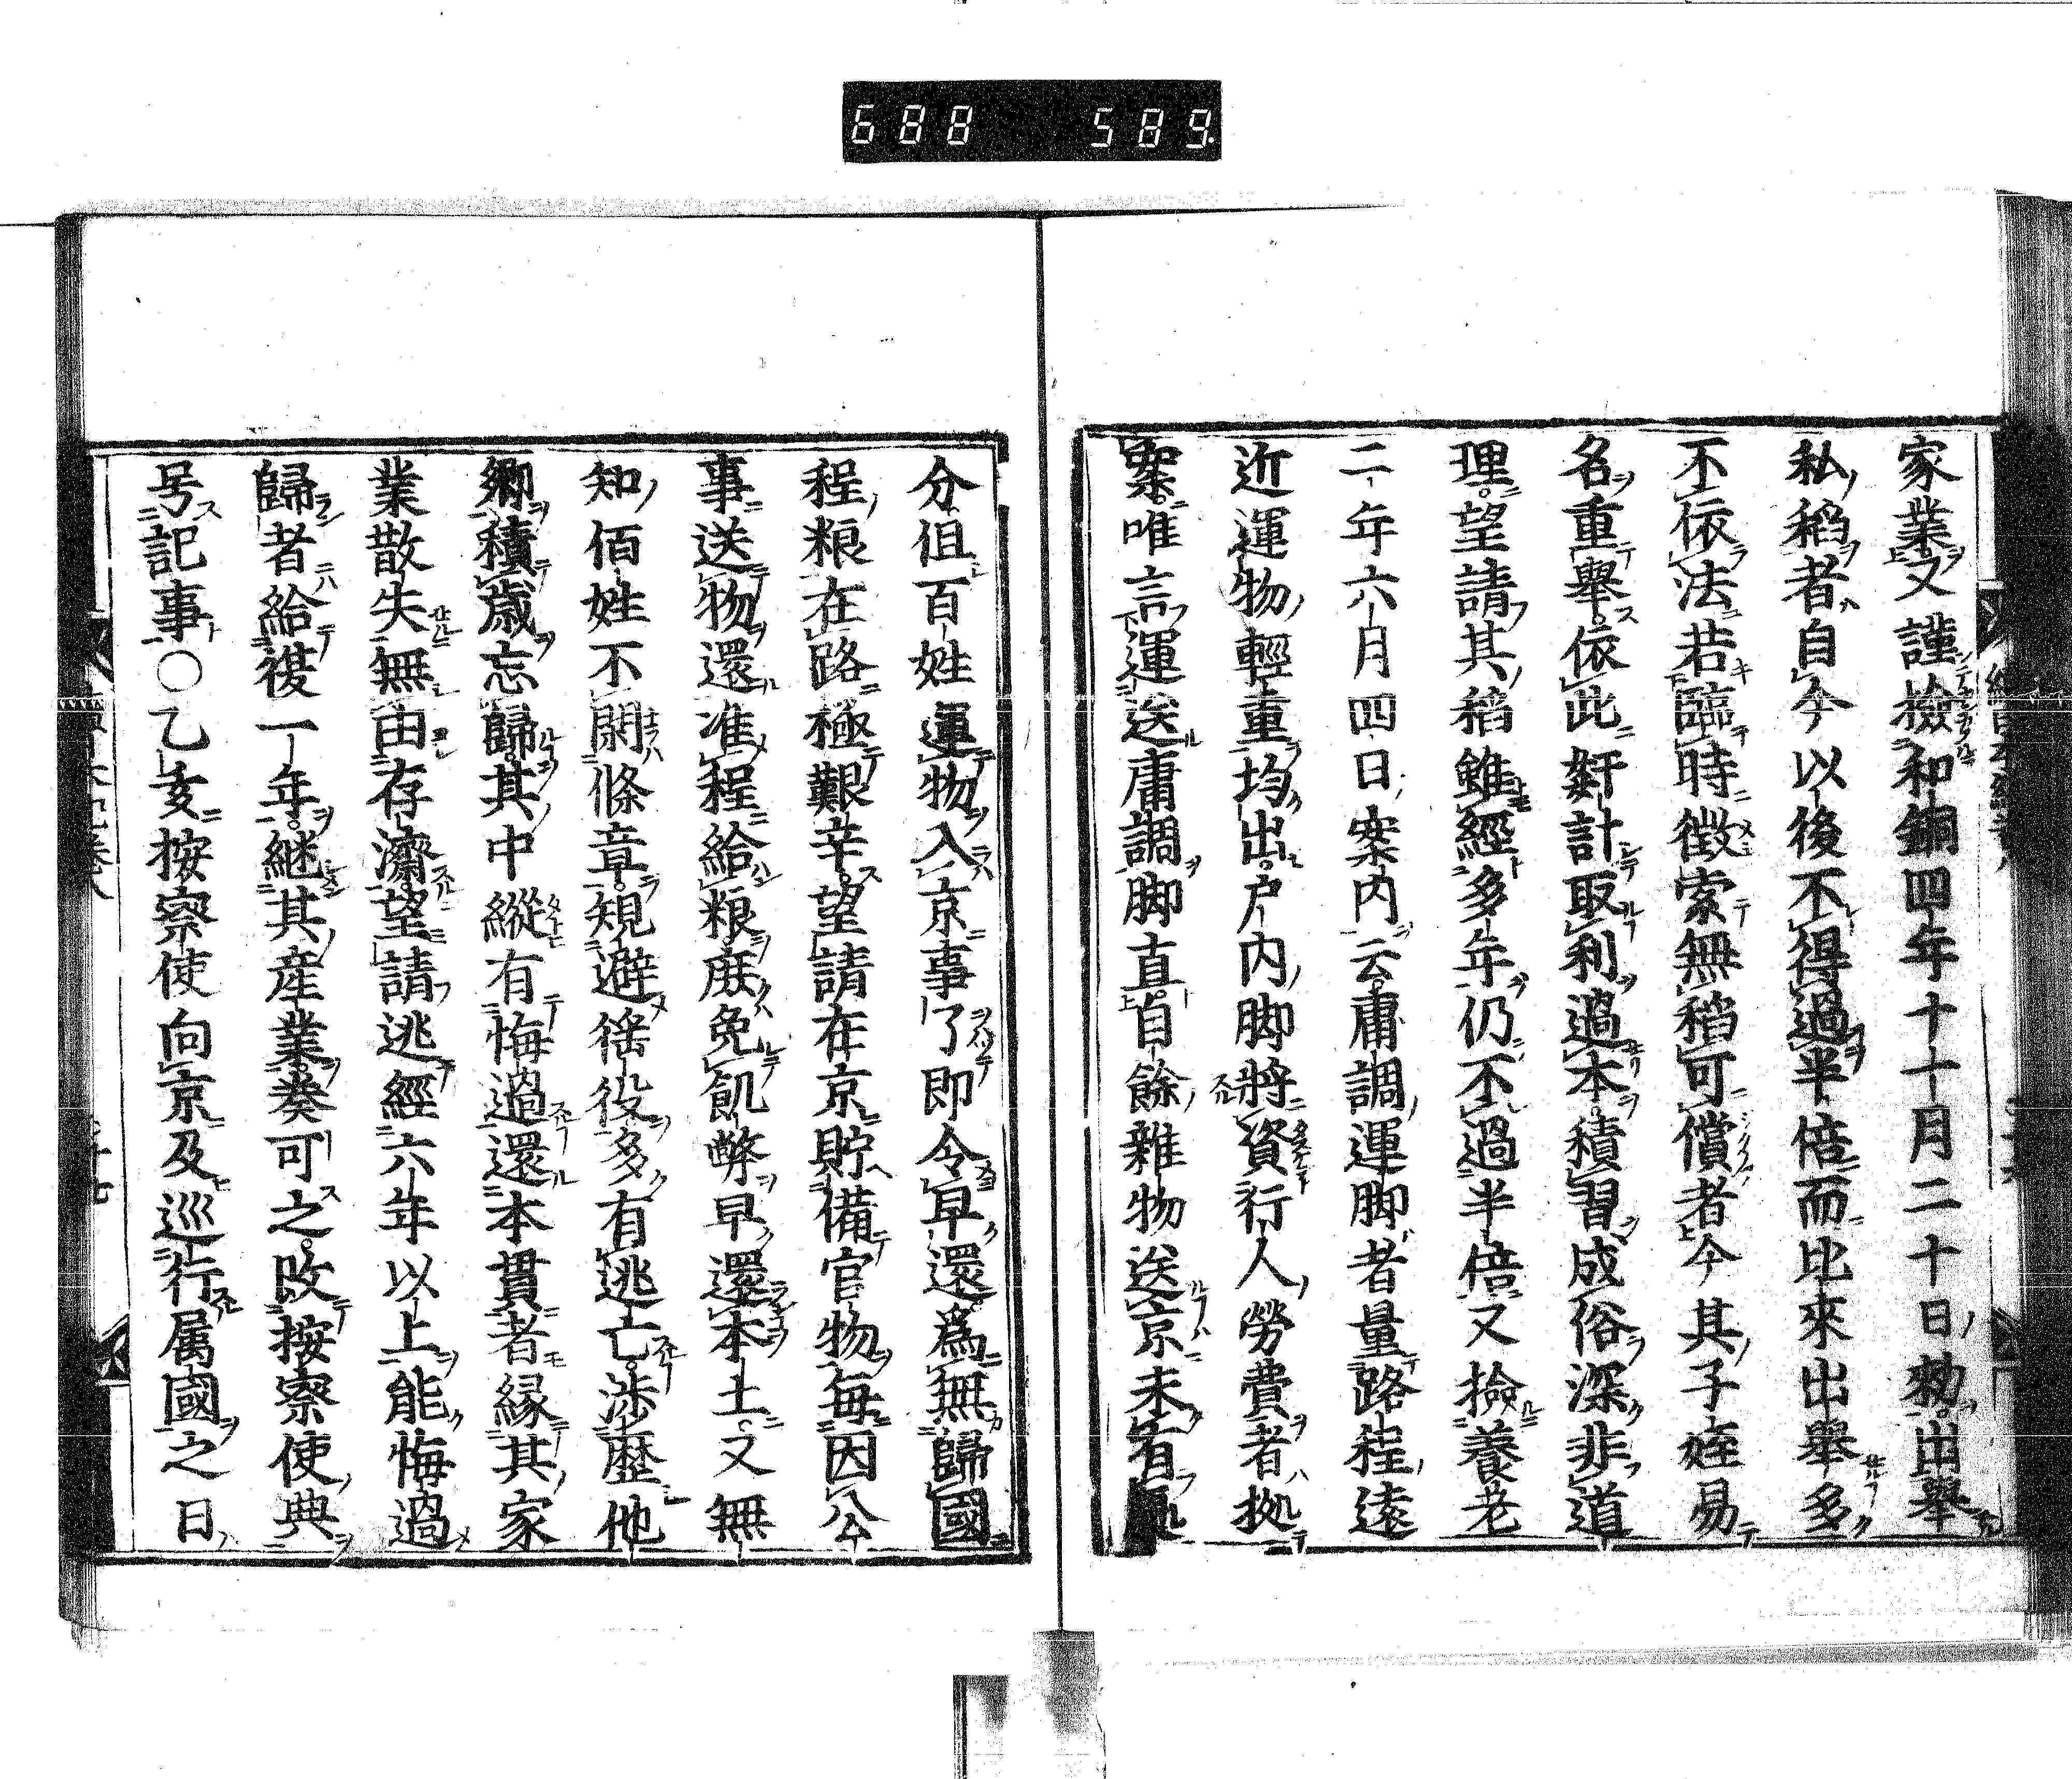 688 589
家業又謹撿和銅四年十一月二十日勑出舉
私稻者自今以後不得過半倍而比來出舉多
不依法若臨時徴索無稻可償者今其子姪易
名重舉依此奸計取利過本積習成俗深非道
理望請其稻雖經多年仍不過半倍又撿養老
二年六月四日案内云庸調運脚者量路程遠
近運物輕重均出户内脚將資行人勞費者拠
案唯言運送庸調脚直自餘雜物送京未有
分但百姓運物入京事了即令早還爲無歸國
程粮在路極艱辛望請在京貯備官物毎因公
事送物還准程給粮庶免飢弊早還本土又無
知佰姓不閑條章規避徭役多有逃亡渉歴他
郷積歳忘歸其中縱有悔過還本貫者縁其家
業散失無由存濟望請逃經六年以上能悔過
歸者給復一年継其産業奏可之改按察使典
号記事〇乙亥按察使向京及巡行属國之日